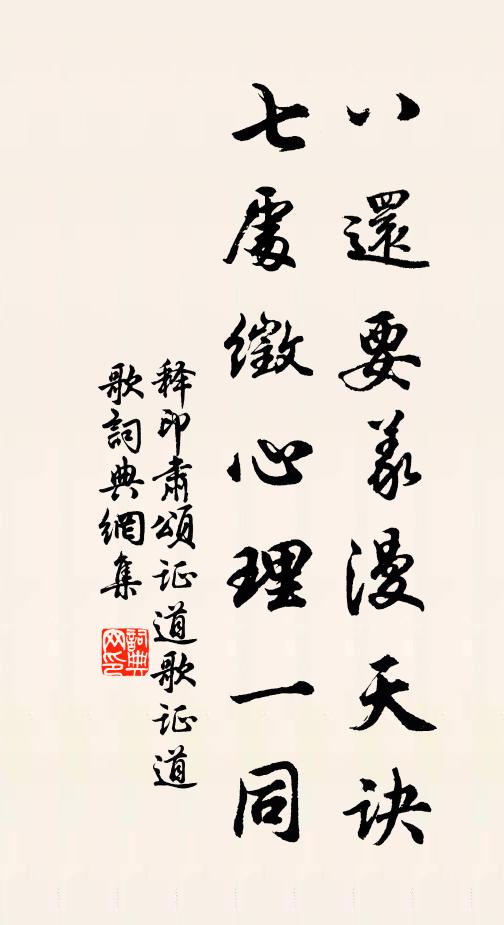 八還要義漫天訣
七處徵心理一同
释印肃頌证道歌证道
歌詞典網集
詞典网印